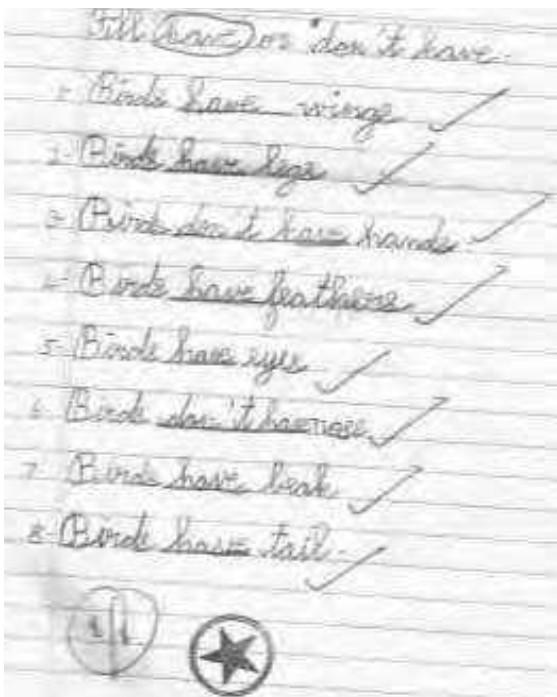 Fill have or "don't have.
1- Birds have wings
2- Birds have legs
3- Birds don't have hands
4- Birds have feathers
5- Birds have eyes
6- Birds don't have nose
7- Birds have beak
8- Birds have tail.